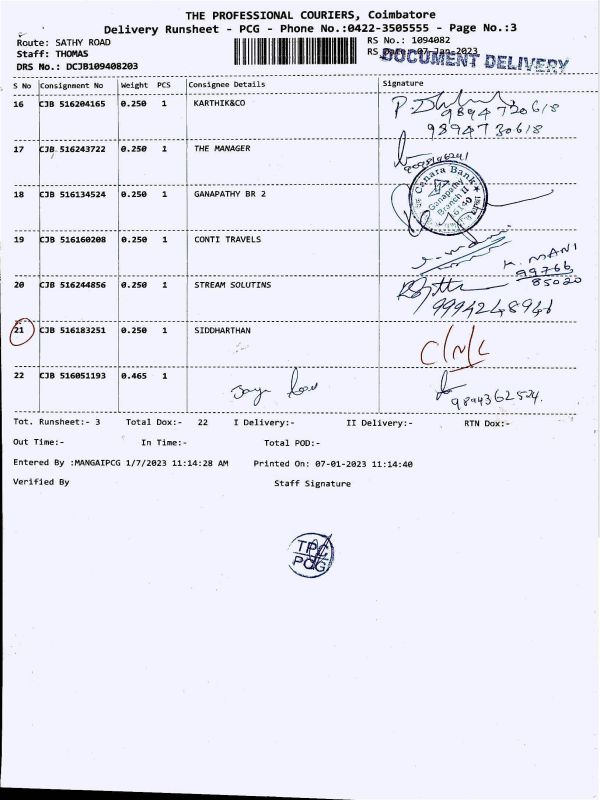 THE PROFESSIONAL COURIERS, Coimbatore
Delivery Runsheet - PCG - Phone No.:0422-3505555 - Page No.:3
Route: SATHY ROAD RS No.: 1094082
Staff: THOMAS RS Date: 07-Jan-2023
DOCUMENT DELIVERY
DRS No.: DCJB109408203
S No Consignment No Weight PCS Consignee Details Signature
16 CJB 516204165 0.250 1 KARTHIK&CO
9894730618
9894730618
17 CJB 516243722 0.250 1 THE MANAGER
18 CJB 516134524 0.250 1 GANAPATHY BR 2
Canara Bank
Ganapathy
Branch II
19 CJB 516160208 0.250 1 CONTI TRAVELS
K. MANI
99766
85020
20 CJB 516244856 0.250 1 STREAM SOLUTINS
21 CJB 516183251 0.250 1 SIDDHARTHAN
C/N/L
22 CJB 516051193 0.465 1
9894362524.
Tot. Runsheet:- 3 Total Dox:- 22 I Delivery:- II Delivery:- RTN Dox:-
Out Time:- In Time:- Total POD:-
Entered By :MANGAIPCG 1/7/2023 11:14:28 AM Printed On: 07-01-2023 11:14:40
Verified By Staff Signature
TPC
PCG